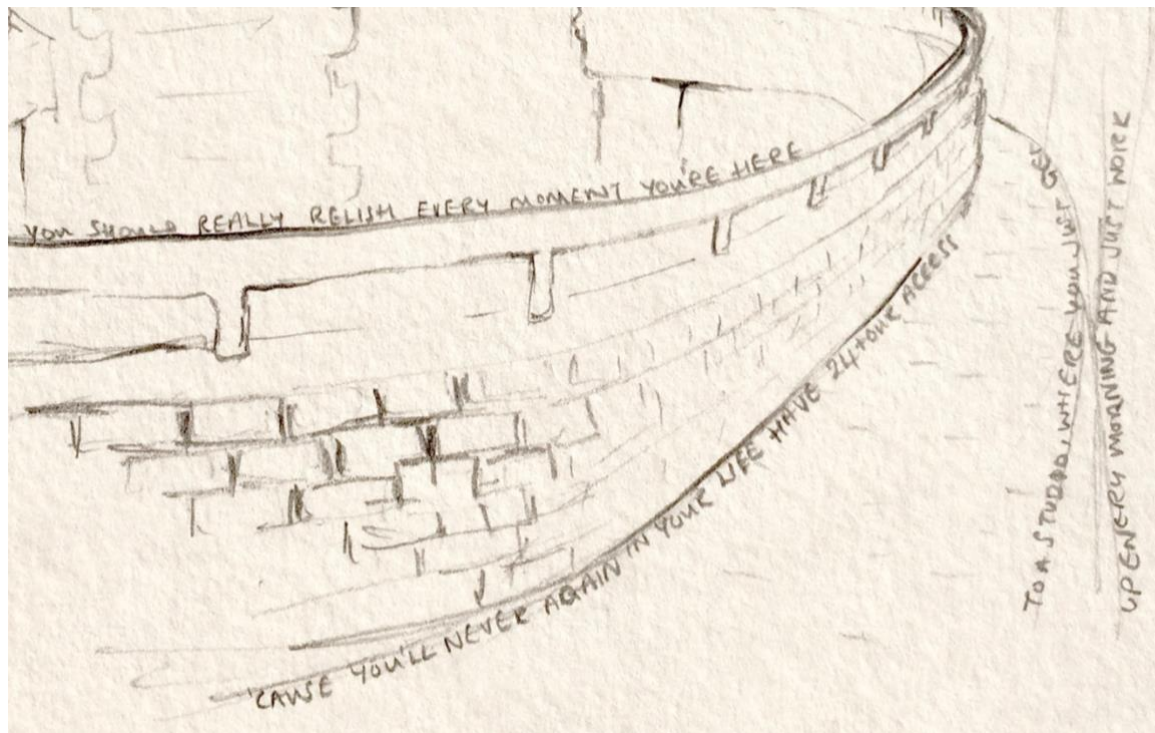 YOU SHOULD REALLY RELISH EVERY MOMENT YOU'RE HERE
'CAUSE YOU'LL NEVER AGAIN IN YOUR LIFE HAVE 24HOUR ACCESS
TO A STUDIO, WHERE YOU JUST GET
UP EVERY MORNING AND JUST WORK